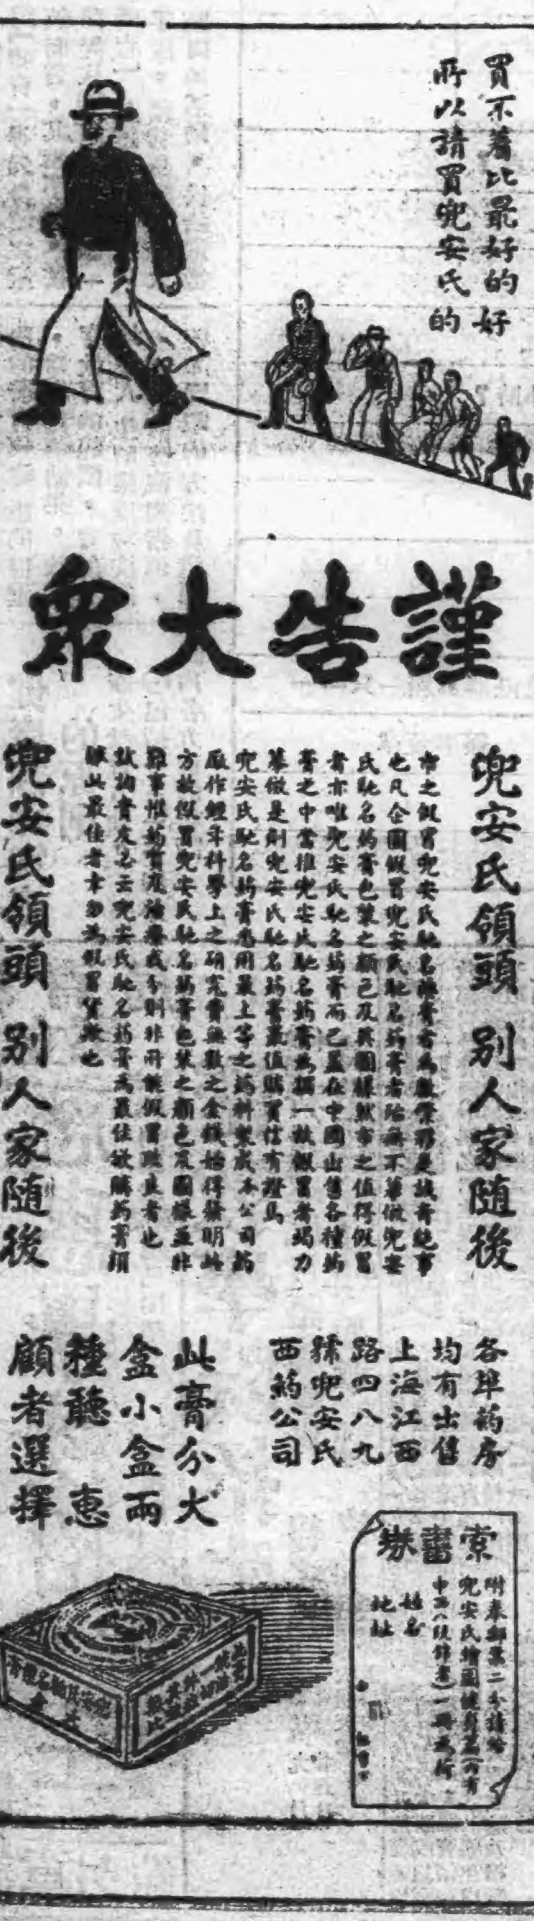 買不着比最好的好
所以請買兜安氏的
謹告大衆
兜安氏領頭 別人家隨後
市之假冒兜安氏馳名藥膏者為數
也凡企圖假冒兜安氏馳名葯膏者殆無不摹倣兜安
氏馳名葯膏包裝之顏色及其圖樣然市之值得假冒
者亦唯兜安氏馳名葯膏而已蓋在中國出售各種葯
膏之中當推兜安氏馳名葯膏為獨一故假冒者竭力
摹倣是則兜安氏馳名葯膏最值購買信有證焉
兜安氏馳名葯膏悉用最上等之葯料製成本公司葯
廠作經年科學上之研究費無數之金錢始得發明此
方故假冒兜安氏馳名葯膏包裝之顏色及圖樣並非
難事惟葯質及治療成分則非所能假冒
兜安氏馳名葯膏為最佳故購葯膏須
購此最佳者幸勿為假冒所欺也
兜安氏領頭 別人家隨後
各埠葯房
均有出售
上海江西
路四八九
號兜安氏
西葯公司
此膏分大
盒小盒兩
種聽 惠
顧者選擇
索書券
附奉郵票二分請給
兜安氏繪圖
姓名
地址